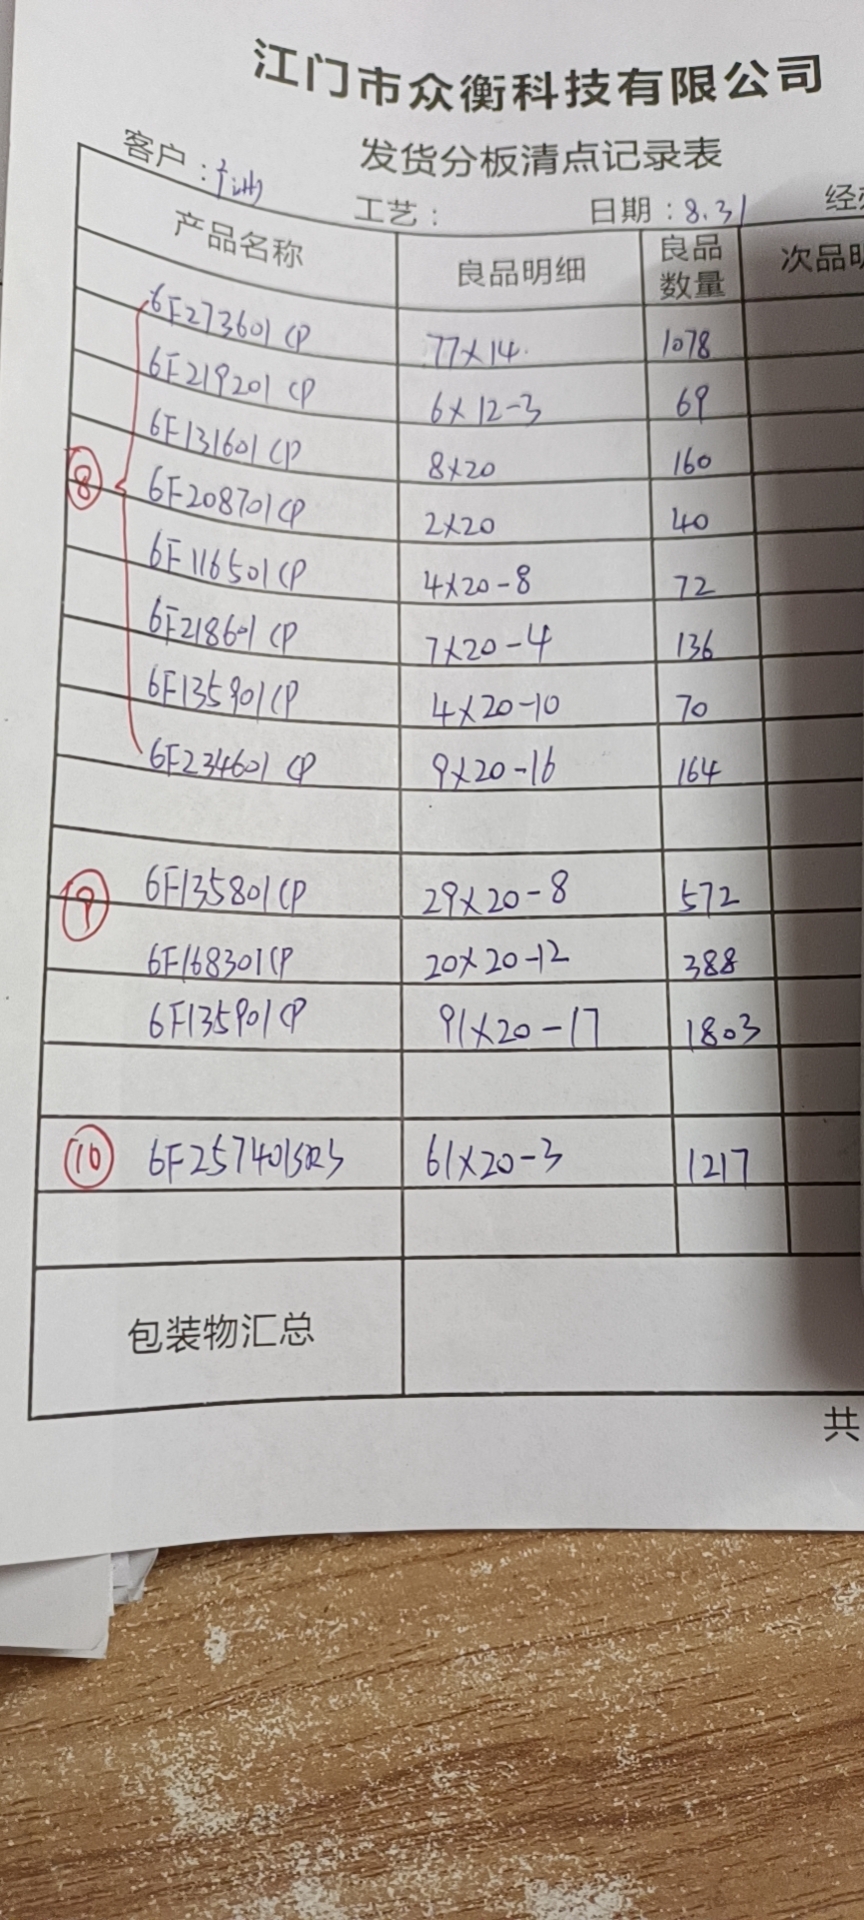 江门市众衡科技有限公司
发货分板清点记录表
客户： 工艺： 日期：8.31 经
产品名称 良品明细 良品数量 次品明
6F273601CP 77×14 1078
6F219201CP 6×12-3 69
6F131601CP 8×20 160
⑧ 6F208701CP 2×20 40
6F116501CP 4×20-8 72
6F218601CP 7×20-4 136
6F135901CP 4×20-10 70
6F234601CP 9×20-16 164
⑨ 6F135801CP 29×20-8 572
6F168301CP 20×20-12 388
6F135901CP 91×20-17 1803
⑩ 61×20-3 1217
包装物汇总
共